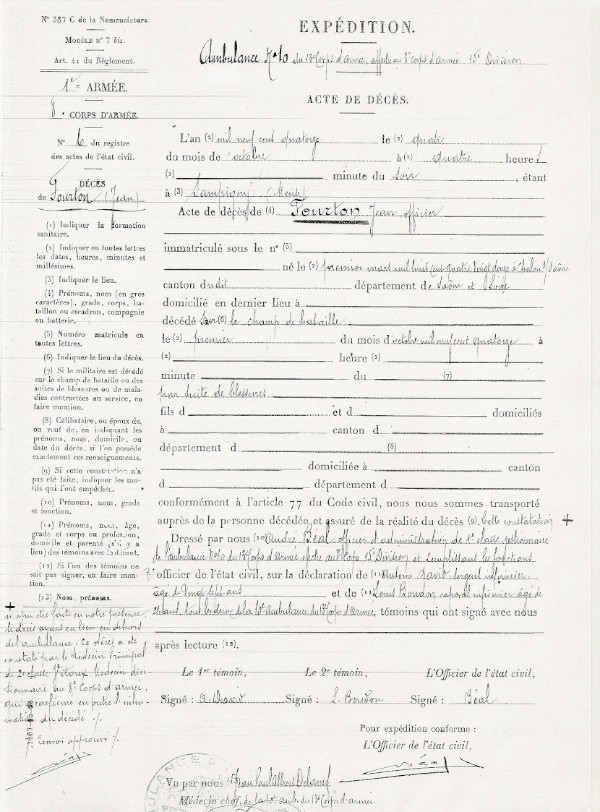 Nº 387 C de la Nomenclature.
MODÈLE nº 7 bis.
Art. 41 du Règlement.
1re ARMÉE.
8e CORPS D'ARMÉE.
Nº 6 du registre
des actes de l'état civil.
DÉCÈS
du Tourton (Jean)
(1) Indiquer la formation
sanitaire.
(2) Indiquer en toutes lettres
les dates, heures, minutes et
millésimes.
(3) Indiquer le lieu.
(4) Prénoms, nom (en gros
caractères), grade, corps, ba-
taillon ou escadron, compagnie
ou batterie.
(5) Numéro matricule en
toutes lettres.
(6) Indiquer le lieu du décès.
(7) Si le militaire est décédé
sur le champ de bataille ou des
suites de blessures ou de mala-
dies contractées au service, en
faire mention.
(8) Célibataire, ou époux de,
ou veuf de, en indiquant les
prénoms, nom, domicile, ou
date du décès, si l'on possède
exactement ces renseignements.
(9) Si cette constatation n'a
pas été faite, indiquer les mo-
tifs qui l'ont empêchée.
(10) Prénoms, nom, grade
et fonction.
(11) Prénoms, nom, âge,
grade et corps ou profession,
domicile et parenté (s'il y a
lieu) des témoins avec le défunt.
(12) Si l'un des témoins ne
sait pas signer, en faire men-
tion.
(13) Nom, prénoms.
+
n'a pu être faite en notre présence,
le décès ayant eu lieu en dehors
de l'ambulance. Ce décès a été
constaté par le Médecin Principal
de 2e classe Médecin divi-
sionnaire au 8e Corps d'armée,
qui a confirmé en outre l'infor-
mation du décédé
renvoi approuvé
EXPÉDITION.
Ambulance Nº 10 du 13e Corps d'armée, affectée au 8e Corps d'armée 15e Division
ACTE DE DÉCÈS.
L'an (2) mil neuf cent quatorze le (2) quatre
du mois de octobre à (2) quatre heures
(2) minute du soir, étant
à (3) Sampigny (Meuse)
Acte de décès de (4) TOURTON Jean officier
immatriculé sous le nº (5)
né le (2) premier mars mil huit cent quatre vingt douze à Chalon s/Saône
canton dudit département de Saône et Loire
domicilié en dernier lieu à
décédé sur (6) le champ de bataille
le (2) premier du mois d'octobre mil neuf cent quatorze à
(2) heure (2)
minute du (7)
par suite de blessures
fils d et d domiciliés
à canton d
département d (8)
domiciliée à canton
d département d
conformément à l'article 77 du Code civil, nous nous sommes transporté
auprès de la personne décédée et assuré de la réalité du décès (9). Cette constatation +
Dressé par nous (10) André Béal officier d'administration de 1re classe gestionnaire
de l'ambulance nº 10 du 13e Corps d'Armée affectée au 8e Corps 15e Division et remplissant les fonctions
d'officier de l'état civil, sur la déclaration de (11) Antoine David sergent infirmier
âgé de vingt sept ans et de (11) Louis Bourdon caporal infirmier âgé de
ans, tous les deux de la 10e Ambulance du 13e Corps d'Armée, témoins qui ont signé avec nous
après lecture (12).
Le 1er témoin, Le 2e témoin, L'Officier de l'état civil,
Signé : A. David Signé : L. Bourdon Signé : Béal
Pour expédition conforme :
L'Officier de l'état civil,
Béal
Vu par nous (13)
Médecin chef, de la 10e amb. du 13e Corps d'armée